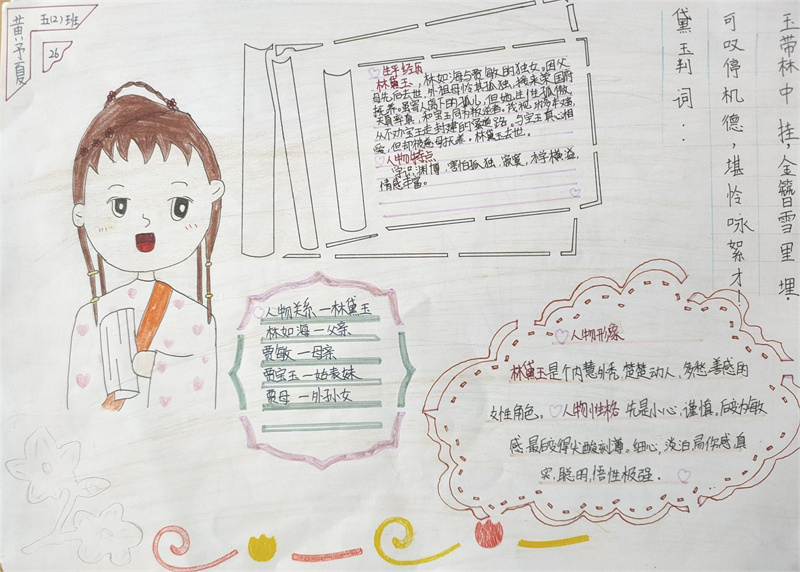 五(2)班
黄予夏
26
生平经历
林黛玉,林如海与贾敏的独女。因父
母先后去世,外祖母怜其孤独,接来荣国府
抚养。虽寄人篱下的孤儿,但她生性孤傲,
天真率真,和宝玉同为
从不劝宝玉走封建的 与宝玉真心相
爱,但却被 林黛玉去世。
人物特点
学识渊博,害怕孤独,寂寞,才学横溢,
情感丰富。
黛玉判词:
可叹停机德,堪怜咏絮才!
玉带林中挂,金簪雪里埋.
人物关系—林黛玉
林如海—父亲
贾敏—母亲
贾宝玉—姑表妹
贾母—外孙女
人物形象
林黛玉是个内慧外秀,楚楚动人,多愁善感的
女性角色。人物性格 先是小心,谨慎。后变为敏
感.最后变得尖酸刻薄。细心,淡泊 伤感.真
实.聪明,悟性极强.